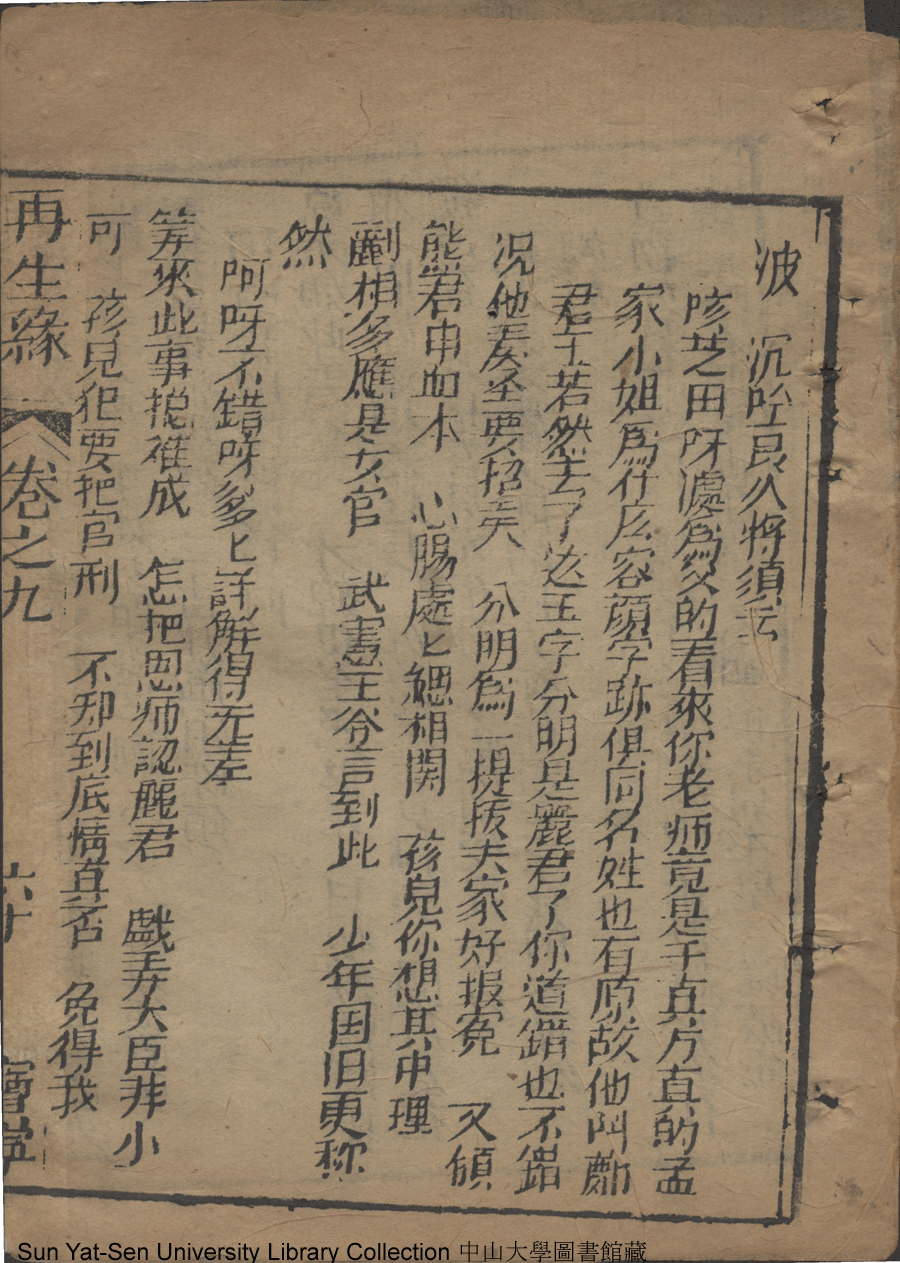 波　沉吟良久將須云
咳芝田呀據爲父的看來你老师竟是千真万直的孟
家小姐爲什庅容顔字跡俱同名姓也有原故他叫酈
君玉若然去了这玉字分明是麗君了你道錯也不錯
况他奏圣要招矣　分明爲一提拔夫家好报寃　又傾
熊君甫血本　心腸處匕緦相関　孩兒你想其中理
酈相多應是女官　武憲王爷言到此　少年国旧更称
然
阿呀不錯呀多匕詳解得无差
筭來此事捴难成　怎把恩师認麗君　戯弄大臣非小
可　孩兒犯要把官刑　不却到底情真否　免得我
再生緣　卷之九　六十　會堂
Sun Yat-Sen University Library Collection 中山大學圖書館藏